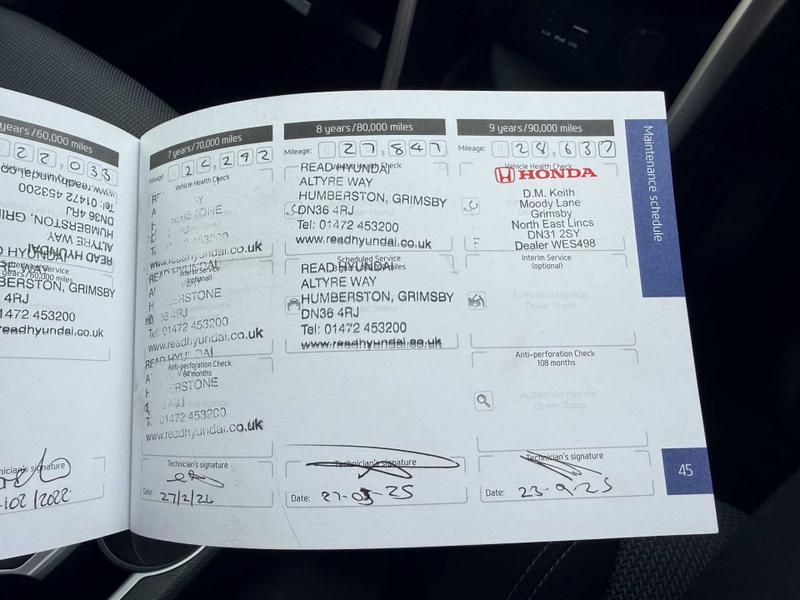 years/60,000 miles
22,033
READ HYUNDAI
ALTYRE WAY
HUMBERSTON, GRIMSBY
DN36 4RJ
Tel: 01472 453200
www.readhyundai.co.uk
HUMBERSTON, GRIMSBY
4RJ
01472 453200
readhyundai.co.uk
Technician's signature
/02/2022
7 years/70,000 miles
Mileage: 24,292
Vehicle Health Check
01472 453200
www.readhyundai.co.uk
READ HYUNDAI
Interim Service
(optional)
Tel: 01472 453200
www.readhyundai.co.uk
READ HYUNDAI
Anti-perforation Check
84 months
01472 453200
www.readhyundai.co.uk
Technician's signature
Date: 27/2/24
8 years/80,000 miles
Mileage: 027,847
Vehicle Health Check
READ HYUNDAI
ALTYRE WAY
HUMBERSTON, GRIMSBY
DN36 4RJ
Tel: 01472 453200
www.readhyundai.co.uk
Scheduled Service
READ HYUNDAI
ALTYRE WAY
HUMBERSTON, GRIMSBY
DN36 4RJ
Tel: 01472 453200
www.readhyundai.co.uk
Technician's signature
Date: 27-05-25
9 years/90,000 miles
Mileage: 028,637
Vehicle Health Check
HONDA
D.M. Keith
Moody Lane
Grimsby
North East Lincs
DN31 2SY
Dealer WES498
Interim Service
(optional)
Authorised Hyundai
Dealer Stamp
Anti-perforation Check
108 months
Authorised Hyundai
Dealer Stamp
Technician's signature
Date: 23-9-25
Maintenance schedule
45